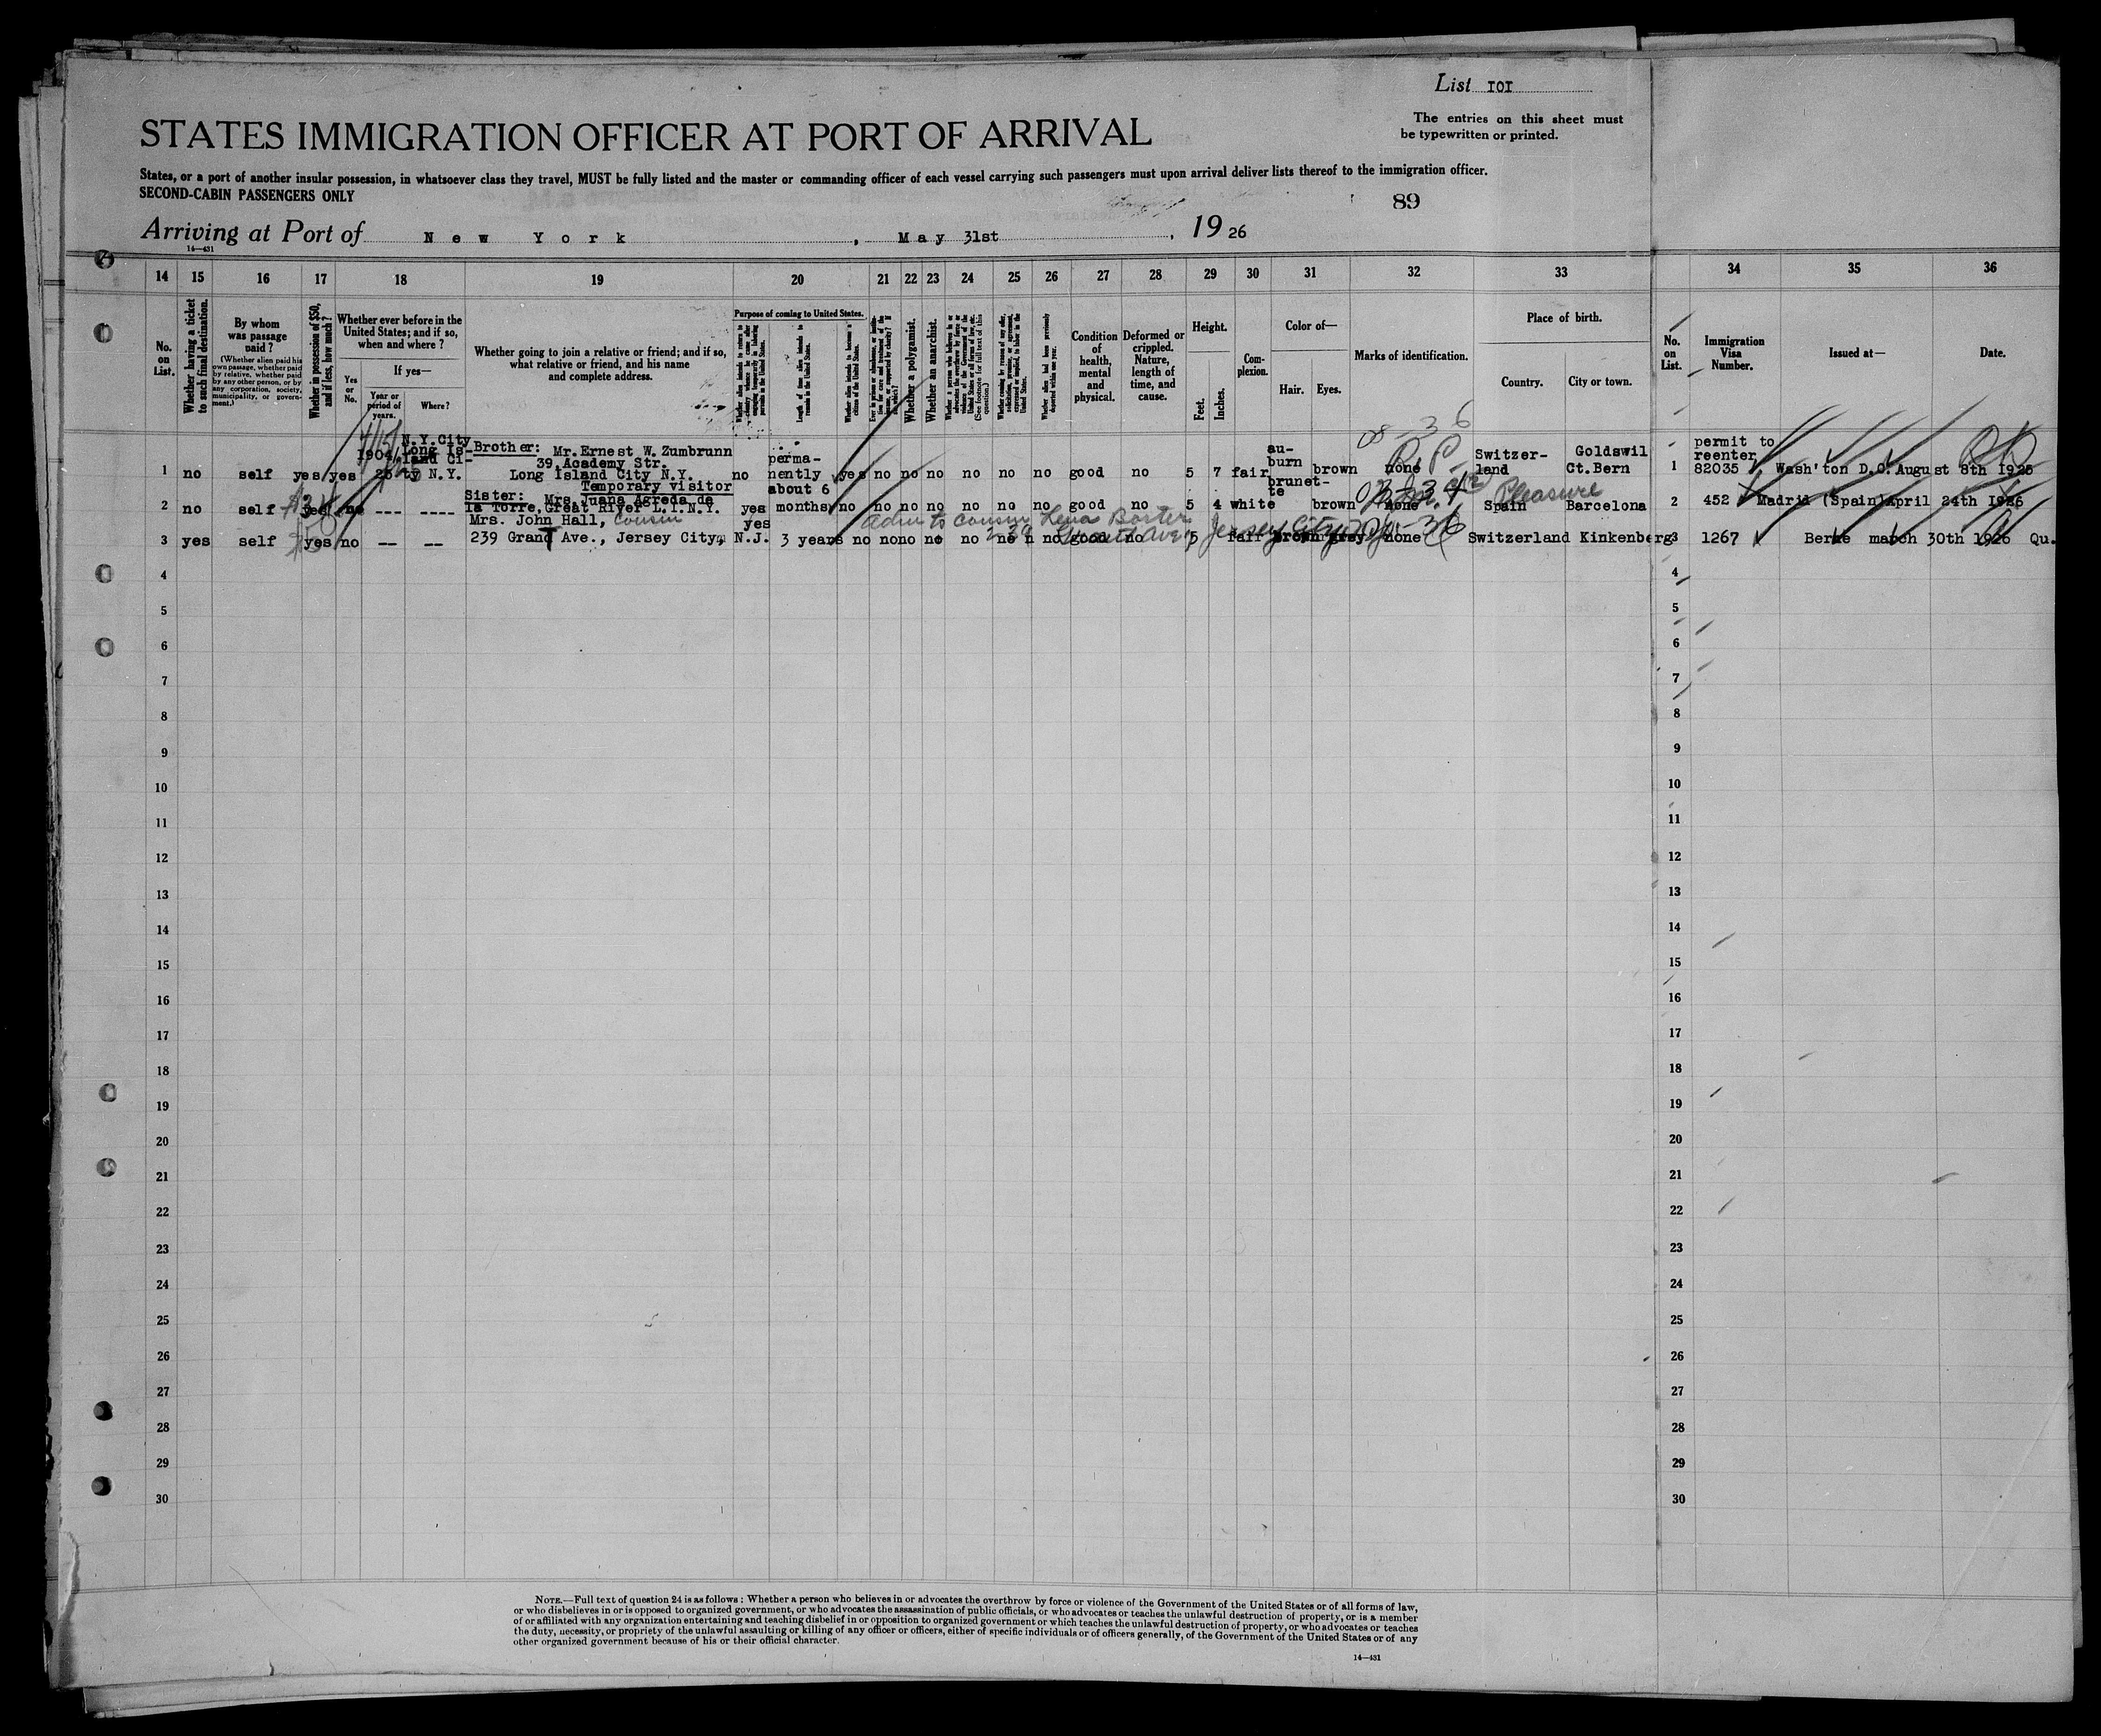 List 101
The entries on this sheet must
be typewritten or printed.
STATES IMMIGRATION OFFICER AT PORT OF ARRIVAL
States, or a port of another insular possession, in whatsoever class they travel, MUST be fully listed and the master or commanding officer of each vessel carrying such passengers must upon arrival deliver lists thereof to the immigration officer.
SECOND-CABIN PASSENGERS ONLY
89
Arriving at Port of New York, May 31st, 1926
14—431
14 15 16 17 18 19 20 21 22 23 24 25 26 27 28 29 30 31 32 33 34 35 36
No. on List.
Whether having a ticket to such final destination.
By whom was passage paid?
(Whether alien paid his own passage, whether paid by relative, whether paid by any other person, or by any corporation, society, municipality, or government.)
Whether in possession of $50, and if less, how much?
Whether ever before in the United States; and if so, when and where?
Yes or No.
If yes—
Year or period of years.
Where?
Whether going to join a relative or friend; and if so, what relative or friend, and his name and complete address.
Purpose of coming to United States.
Length of time alien intends to remain in the United States.
Whether alien intends to become a citizen of the United States.
Whether a polygamist.
Whether an anarchist.
(See footnote for full text of this question.)
Whether alien had been previously deported within one year.
Condition of health, mental and physical.
Deformed or crippled. Nature, length of time, and cause.
Height.
Feet. Inches.
Complexion.
Color of—
Hair. Eyes.
Marks of identification.
Place of birth.
Country. City or town.
No. on List.
Immigration Visa Number.
Issued at—
Date.
1 no self yes yes 1904/ 25 N.Y.City Long Is-land Ci-ty N.Y. Brother: Mr. Ernest W. Zumbrunn 39 Academy Str. Long Island City N.Y. no perma-nently yes no no no no no no good no 5 7 fair au-burn brown none R.P. Switzer-land Goldswil Ct.Bern 1 permit to reenter 82035 Wash'ton D.C. August 8th 1925
Temporary visitor
2 no self yes no --- ---- Sister: Mrs. Juana Agreda de la Torre, Great River L.I.N.Y. yes about 6 months no no no no no no no good no 5 4 white brunet-te brown none Pleasure Spain Barcelona 2 452 Madrid (Spain) April 24th 1926
adm to cousin Lena
Jersey City
3 yes self yes no -- -- Mrs. John Hall, cousin 239 Grand Ave., Jersey City, N.J. yes 3 years no no no no no no no good no 5 fair brown grey none Switzerland Kinkenberg 3 1267 Berne march 30th 1926 Qu.
4 4
5 5
6 6
7 7
8 8
9 9
10 10
11 11
12 12
13 13
14 14
15 15
16 16
17 17
18 18
19 19
20 20
21 21
22 22
23 23
24 24
25 25
26 26
27 27
28 28
29 29
30 30
NOTE.—Full text of question 24 is as follows: Whether a person who believes in or advocates the overthrow by force or violence of the Government of the United States or of all forms of law,
or who disbelieves in or is opposed to organized government, or who advocates the assassination of public officials, or who advocates or teaches the unlawful destruction of property, or is a member
of or affiliated with any organization entertaining and teaching disbelief in or opposition to organized government or which teaches the unlawful destruction of property, or who advocates or teaches
the duty, necessity, or propriety of the unlawful assaulting or killing of any officer or officers, either of specific individuals or of officers generally, of the Government of the United States or of any
other organized government because of his or their official character.
14—431